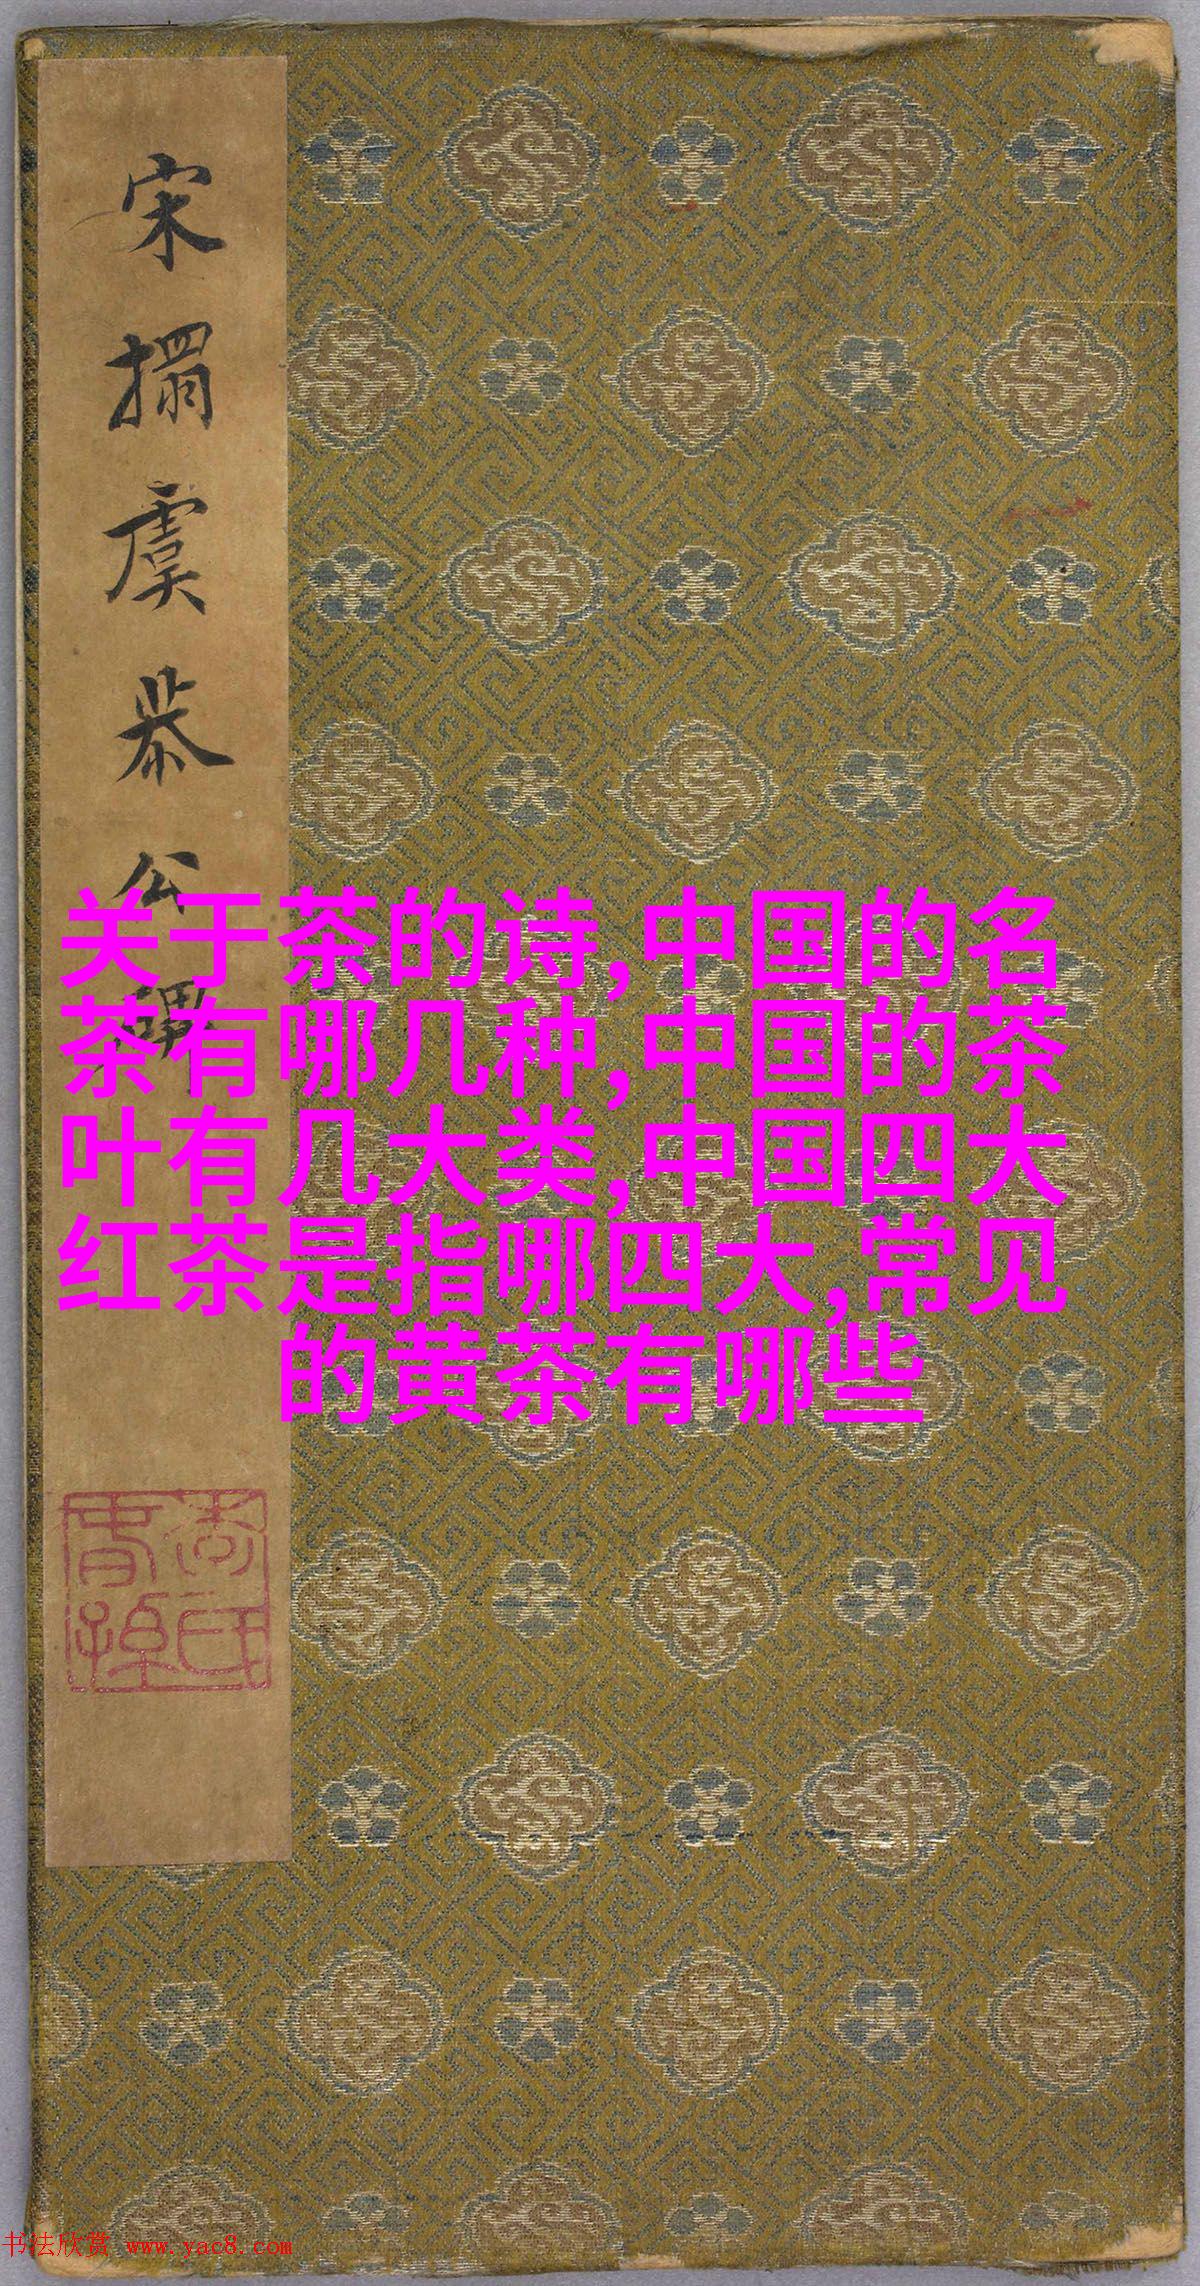 宋搨虞恭公碑
关于茶的诗,中国的名
茶有哪几种,中国的茶
叶有几大类,中国四大
红茶是指哪四大,常见
的黄茶有哪些
书法欣赏 www.yac8.com